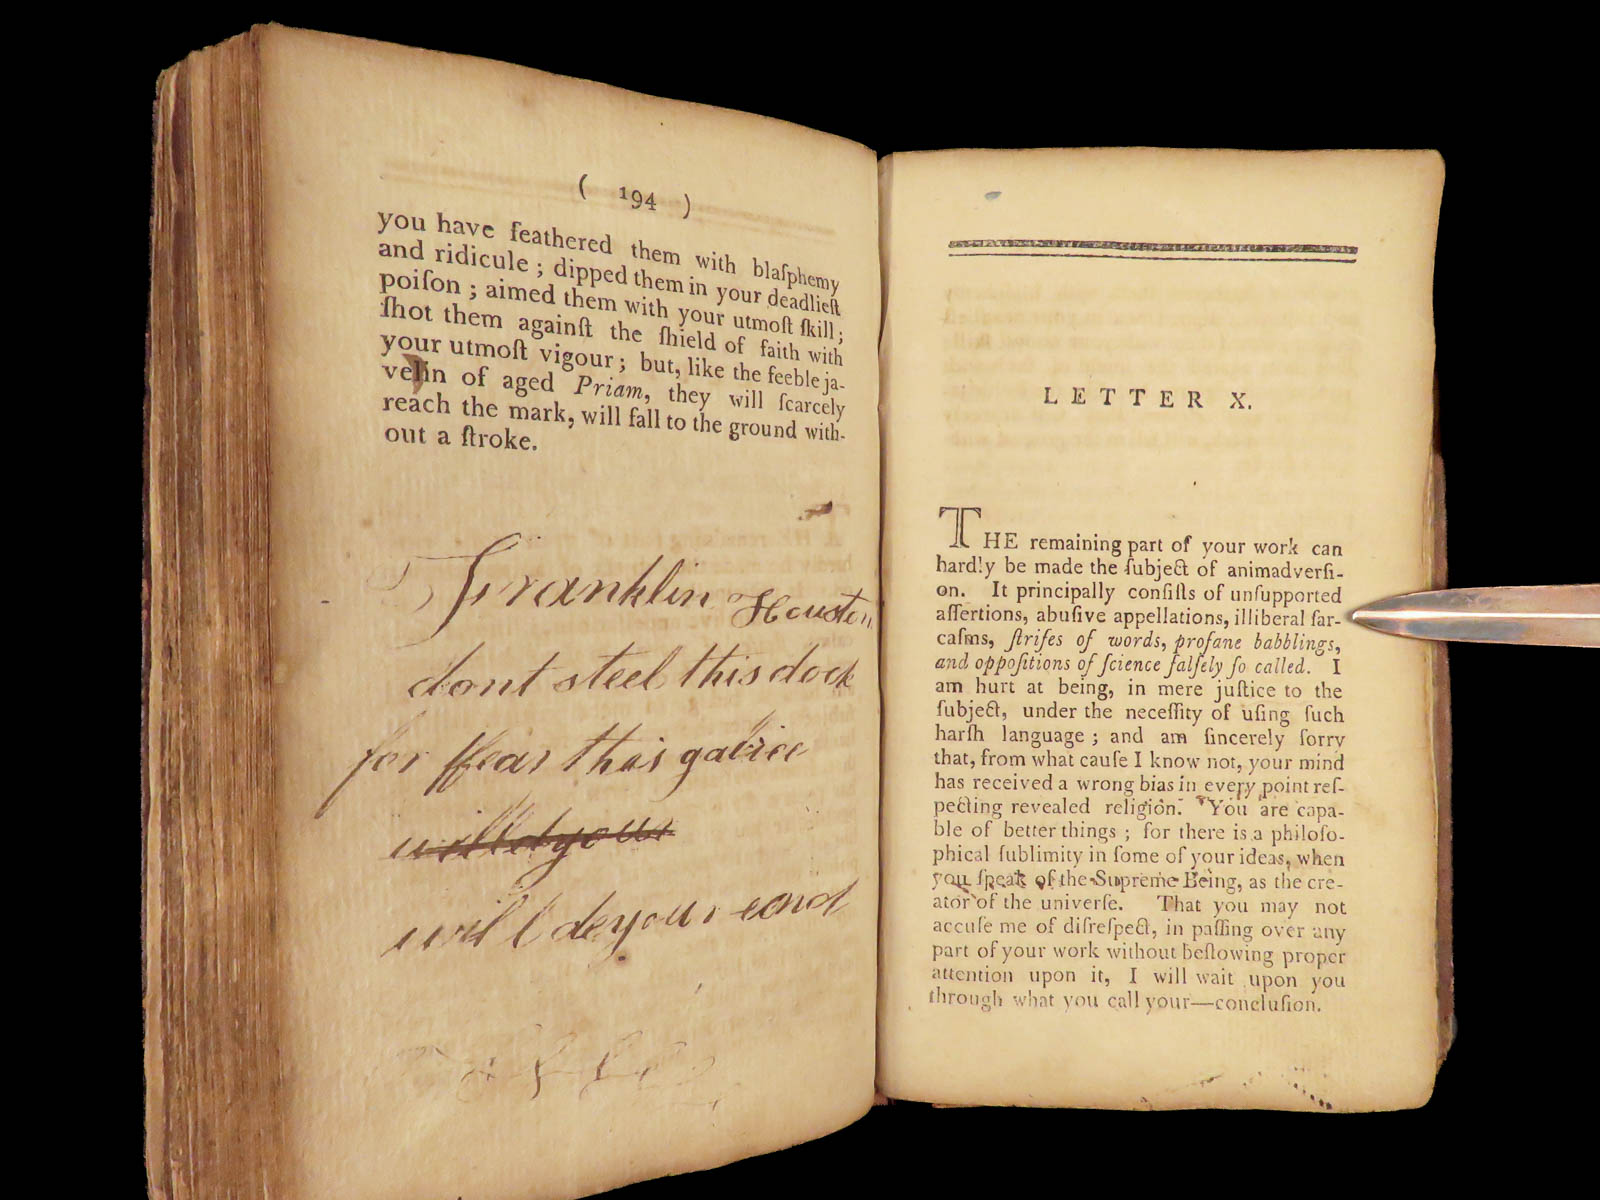 ( 194 )
you have feathered them with blaſphemy
and ridicule ; dipped them in your deadlieſt
poiſon ; aimed them with your utmoſt ſkill ;
ſhot them againſt the ſhield of faith with
your utmoſt vigour ; but, like the feeble ja-
velin of aged Priam, they will ſcarcely
reach the mark, will fall to the ground with-
out a ſtroke.
Franklin Houston
dont steel this dock
for ffear this gallice
will dyour
will de your eand
LETTER X.
THE remaining part of your work can
hardly be made the ſubject of animadverſi-
on. It principally conſiſts of unſupported
aſſertions, abuſive appellations, illiberal ſar-
caſms, ſtrifes of words, profane babblings,
and oppoſitions of ſcience falſely ſo called. I
am hurt at being, in mere juſtice to the
ſubject, under the neceſſity of uſing ſuch
harſh language ; and am ſincerely ſorry
that, from what cauſe I know not, your mind
has received a wrong bias in every point reſ-
pecting revealed religion. You are capa-
ble of better things ; for there is a philoſo-
phical ſublimity in ſome of your ideas, when
you ſpeak of the Supreme Being, as the cre-
ator of the univerſe. That you may not
accuſe me of diſreſpect, in paſſing over any
part of your work without beſtowing proper
attention upon it, I will wait upon you
through what you call your—concluſion.